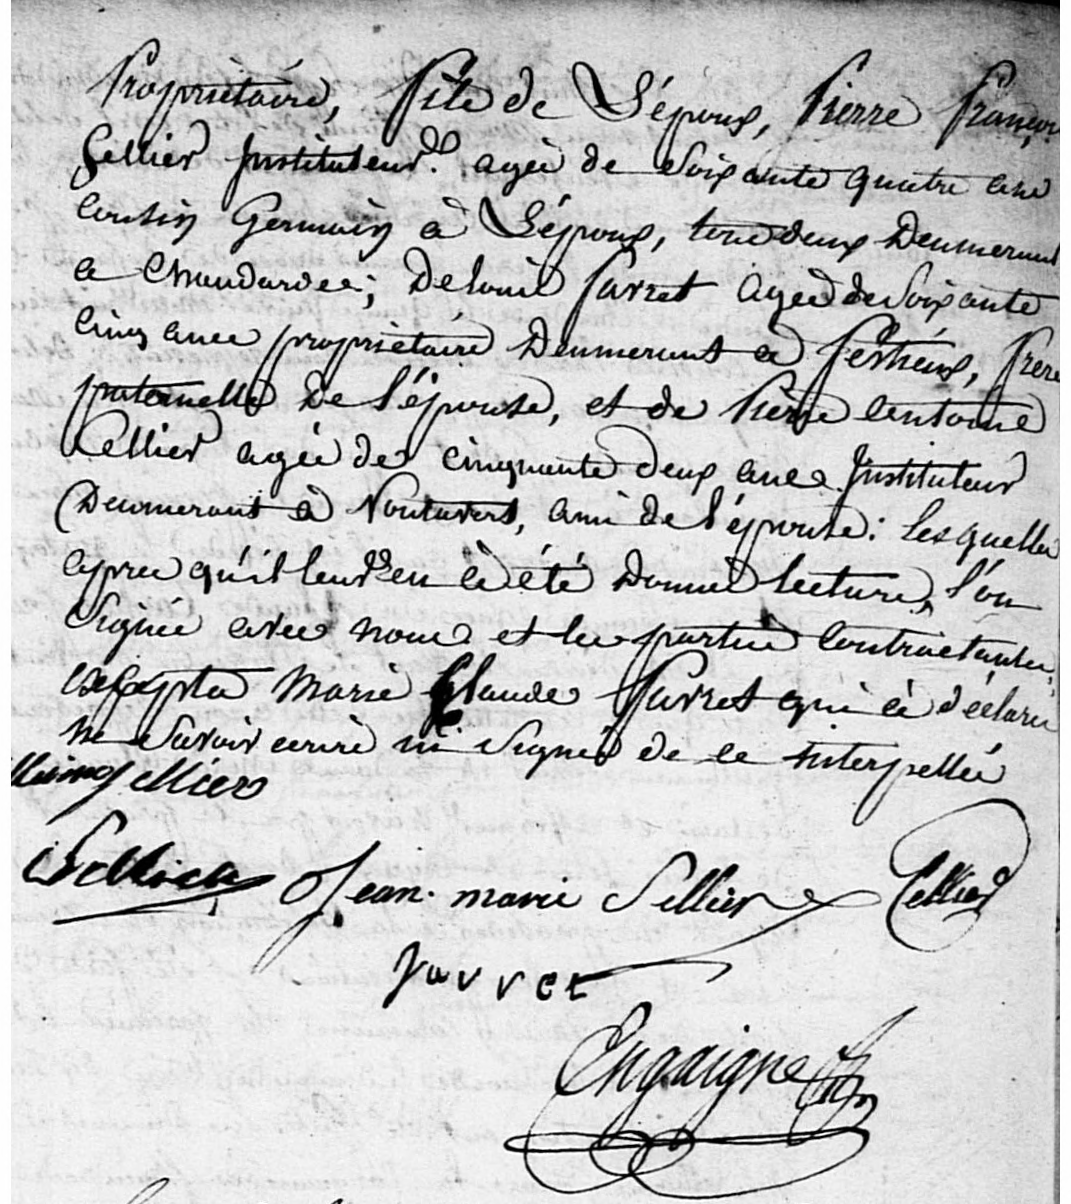 Propriétaire, Fils de L'époux, Pierre François
Sellier Instituteur agée de soixante quatre ans
cousin Germain à L'époux, tous deux Deumerant
a Chaudardes, De Louis Jarret agée de soixante
cinq ans propriétaire Deumerant a Pertheux, frere
paternelle De l'épouse, et de Pierre antoine
Cellier agée de cinquante deux ans Instituteur
Deumerant à ami de l'épouse: Lesquelles
apres qu'il leurs en à été Donné lecture, l'on
Signée avec nous et les parties contractantes,
Marie Claude Jarret qui à déclaré
ne Savoir ecrire ni Signé de ce interpellée
Sellier
Sellier Jean marie Sellier Cellier
Jarret
Engaigne